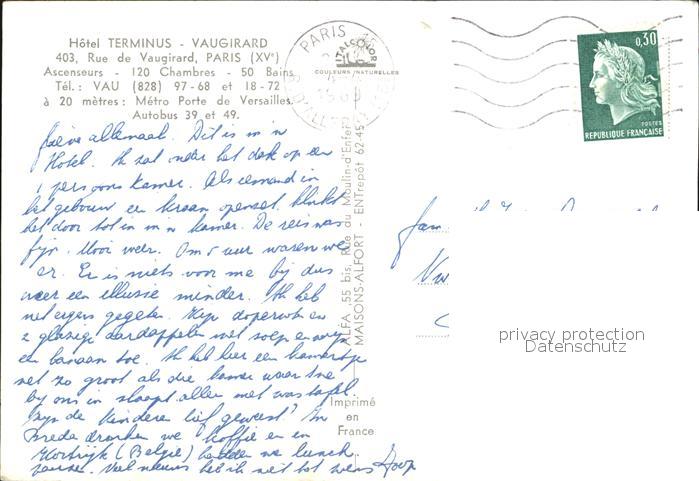 Hôtel TERMINUS - VAUGIRARD
403, Rue de Vaugirard, PARIS (XVᵉ)
Ascenseurs - 120 Chambres - 50 Bains
Tél. : VAU (828) 97-68 et 18-72
à 20 mètres : Métro Porte de Versailles
Autobus 39 et 49.
PARIS 15
ITALCOLOR
COULEURS NATURELLES
0,30
POSTES
REPUBLIQUE FRANÇAISE
allemaal. Dit is m'n
Hotel. Ik zat onder het dak op een
1 persoons kamer. Als iemand in
het gebouw een kraan openzet, klinkt
het door tot in m'n kamer. De reis was
fijn. Mooi weer. Om 5 uur waren we
er. Er is niets voor me bij dus
weer een illusie minder. Ik heb
net ergens gegeten. Kip doperwten en
2 glazige aardappelen met soep en
een banaan toe. Ik heb hier een kamertje
net zo groot als die kamer waar
bij ons in slaapt alleen met wastafel.
Zijn de kinderen lief geweest? In
Breda dronken we koffie en in
Kortrijk (België) hadden we lunch
pauze. Veel nieuws heb ik niet tot Joop
ALFA - 55 bis, Rue du Moulin-d'Enfer
MAISONS-ALFORT - ENTrepôt 62-45
Imprimé
en
France
Fam
privacy protection
Datenschutz